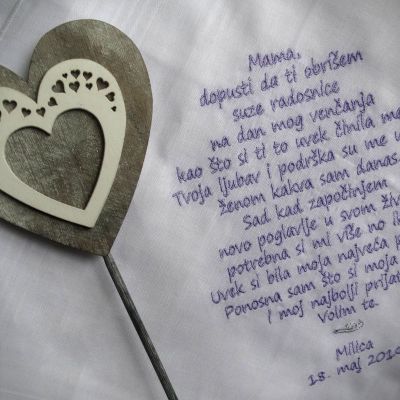 Mama,
dopusti da ti obrišem
suze radosnice
na dan mog venčanja
kao što si ti to uvek činila me
Tvoja ljubav i podrška su me u
ženom kakva sam danas.
Sad kad započinjem
novo poglavlje u svom živ
potrebna si mi više no ik
Uvek si bila moja najveća p
Ponosna sam što si moja
i moj najbolji prijat
Volim te.
Milica
18. maj 201